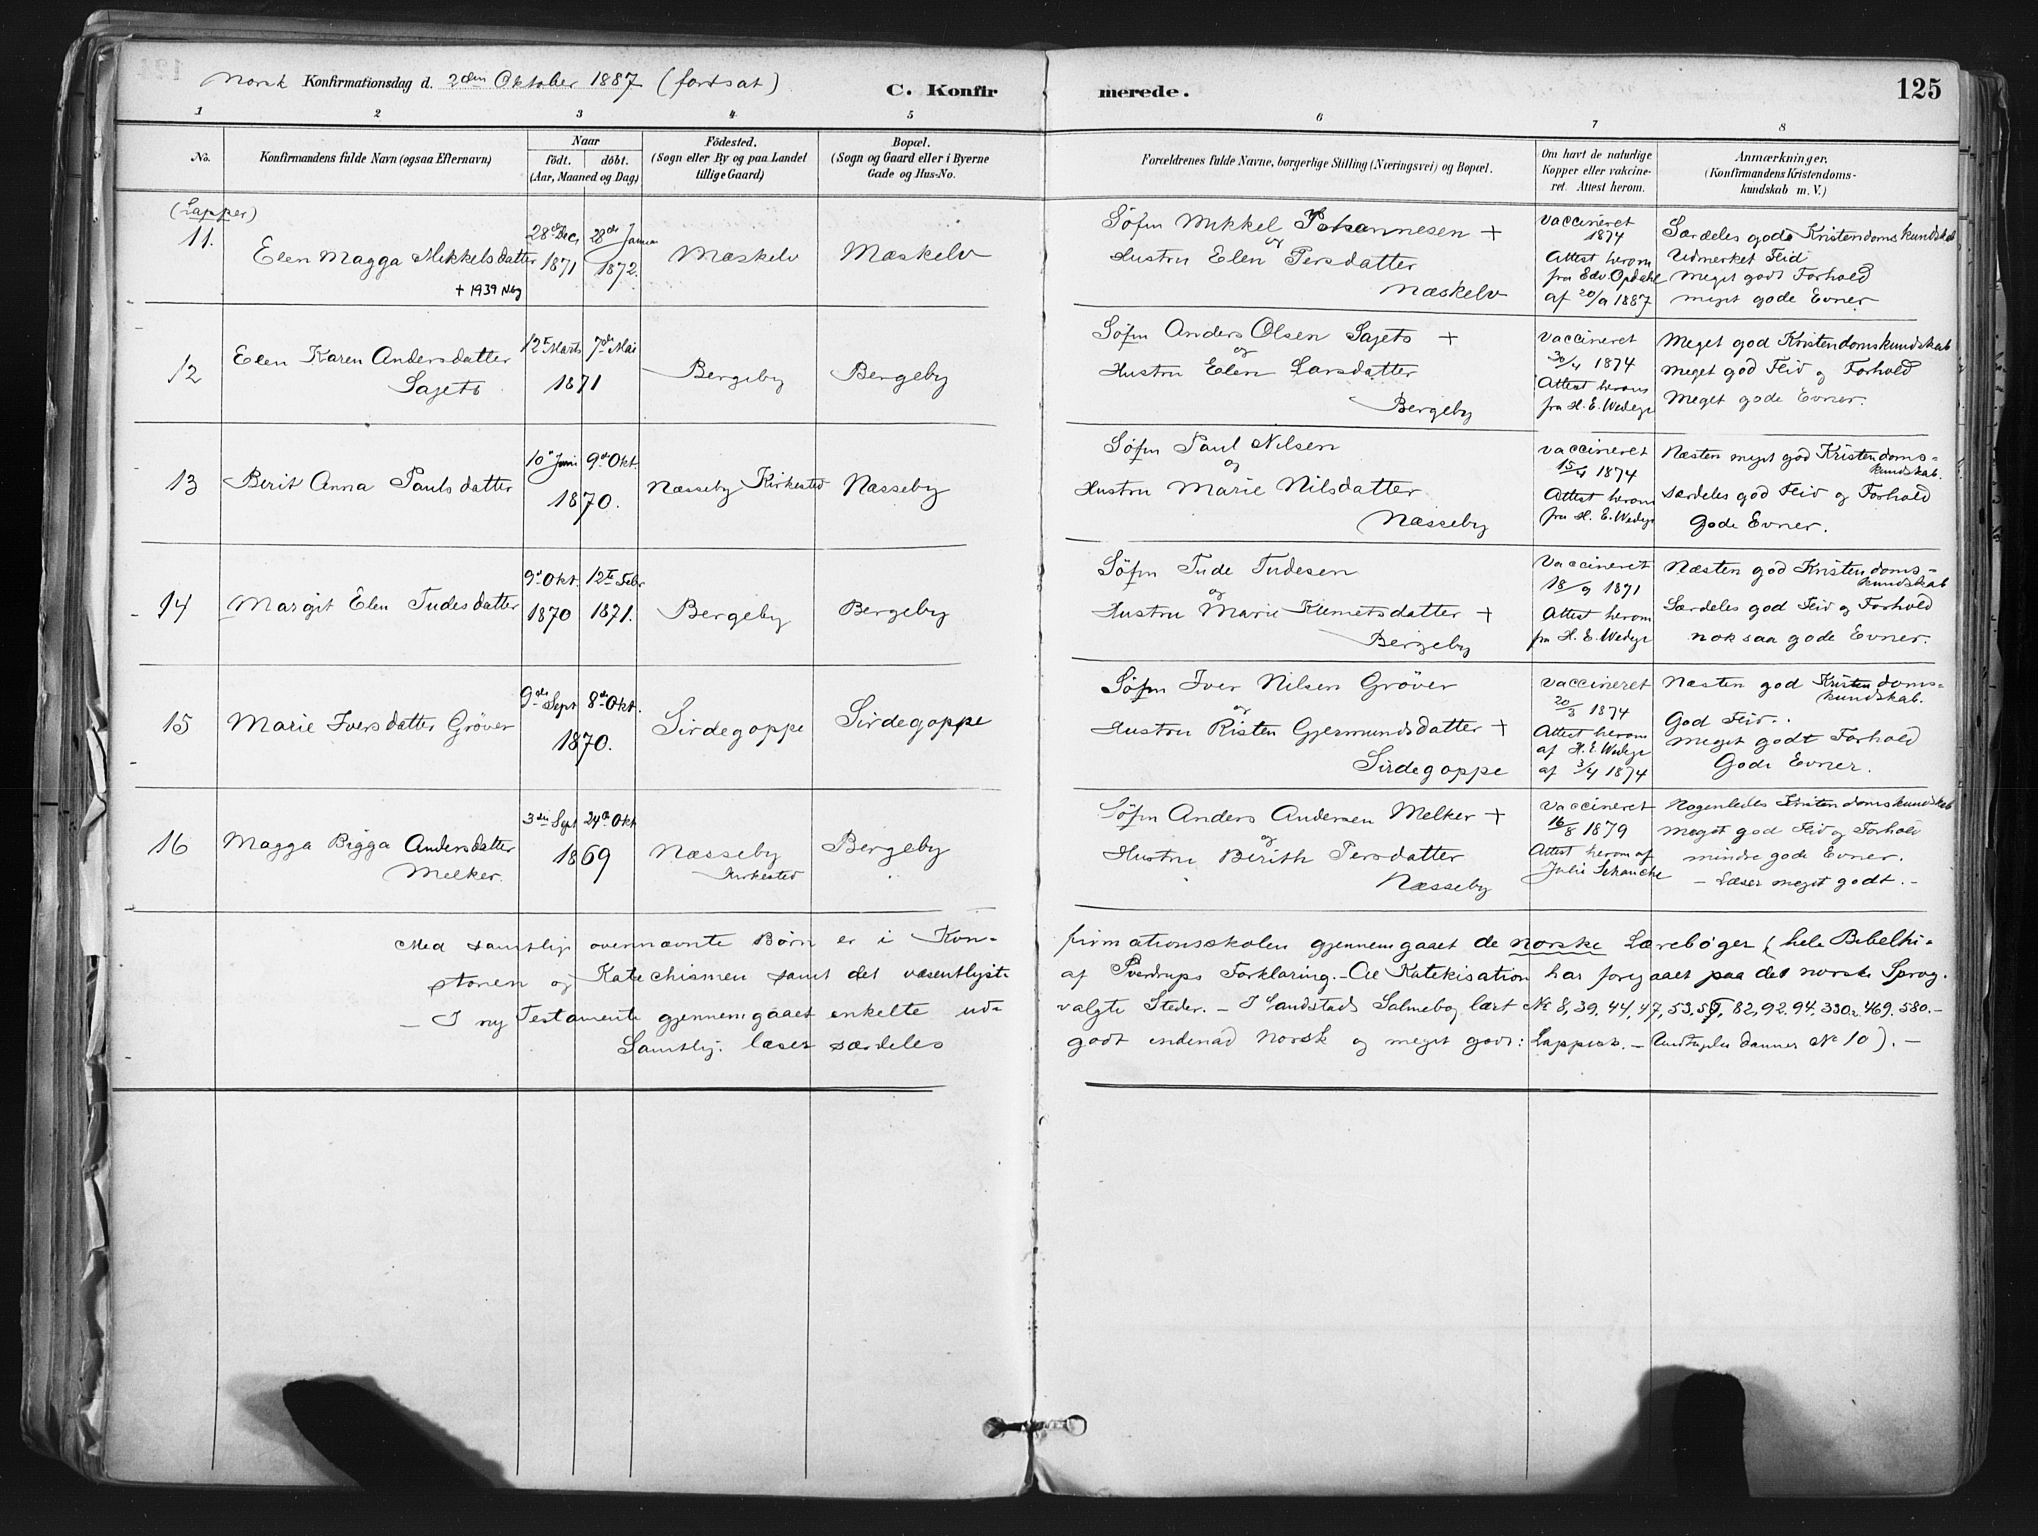 Norsk Konfirmationsdag d. 2den Oktober 1887 (fortsat)
C. Konfirmerede.
125
1 2 3 4 5 6 7 8
No.
Konfirmandens fulde Navn (ogsaa Efternavn)
Naar
födt. döbt.
(Aar, Maaned og Dag)
Födested.
(Sogn eller By og paa Landet
tillige Gaard)
Bopæl.
(Sogn og Gaard eller i Byerne
Gade og Hus-No.
Forældrenes fulde Navne, borgerlige Stilling (Næringsvei) og Bopæl.
Om havt de naturlige
Kopper eller vakcine-
ret. Attest herom.
Anmærkninger.
(Konfirmandens Kristendoms-
kundskab m. V.)
(Lapper)
11.
Elen Magga Mikkelsdatter
+ 1939 Nby
28de Decr
1871
28de Januar
1872.
Mæskelv
Mæskelv
Söfin Mikkel Johannesen +
og
Hustru Elen Persdatter
Mæskelv
Vaccineret
1874
Attest herom
fra Edv. Opdahl
af 20/9 1887
Særdeles gode Kristendomskundskab
Udmerket Flid
Meget godt Forhold
meget gode Evner
12
Elen Karen Andersdatter
Sajets
12te Marts 7de Mai
1871
Bergeby
Bergeby
Söfin Anders Olsen Sajets +
og
Hustru Elen Larsdatter
Bergeby
Vaccineret
30/4 1874
Attest herom
fra H. E. Wedege
Meget god Kristendomskundskab
Meget god Flid og Forhold
Meget gode Evner.
13
Berit Anna Paulsdatter
10de Juni 9de Okt.
1870.
Næsseby Kirkested
Næsseby
Söfin Paul Nilsen
og
Hustru Marie Nilsdatter
Næsseby
Vaccineret
15/4 1874
Attest herom
fra H. E. Wedege
Næsten meget god Kristendoms-
kundskab.
Særdeles god Flid og Forhold
Gode Evner.
14
Margit Elen Tudesdatter
9de Okt. 12te Febr
1870 1871.
Bergeby
Bergeby
Söfin Tude Tudesen
og
Hustru Marie Klemetsdatter +
Bergeby
Vaccineret
18/9 1871
Attest herom
fra H. E. Wedege
Næsten god Kristendoms-
kundskab
Særdeles god Flid og Forhold
nok saa gode Evner.
15
Marie Iversdatter Gröver
9de Sept 8de Okt.
1870.
Sirdegoppe
Sirdegoppe
Söfin Iver Nilsen Gröver
og
Hustru Risten Gjermundsdatter +
Sirdegoppe
Vaccineret
20/3 1874
Attest herom
af H. E. Wedege
af 3/4 1874
Næsten god Kristendoms-
kundskab.
God Flid.
Meget godt Forhold
Gode Evner.
16
Magga Bigga Andersdatter
Melker.
3die Sept 24de Okt
1869
Næsseby
Kirkested
Bergeby
Söfin Anders Andersen Melker +
og
Hustru Birith Persdatter
Næsseby
Vaccineret
16/8 1879
Attest herom af
Julie Schanche
Nogenledes Kristendomskundskab
meget god Flid og Forhold
mindre gode Evner.
– Læser meget godt. –
Med samtlige ovennævnte Börn er i Kon- firmationsskolen gjennemgaaet de norske Læreböger (hele Bibelhi-
storien og Katechismen samt det væsentligste af Sverdrups Forklaring. – Al Katekisation har foregaaet paa det norske Sprog.
– I ny Testamente gjennemgaaet enkelte ud- valgte Steder. – I Landstads Salmebog lært No 8, 39, 44, 47, 53, 82, 92, 94, 330, 469, 580. –
Samtlige læser særdeles godt indenad Norsk og meget godt Lappisk. – danner No 10). –